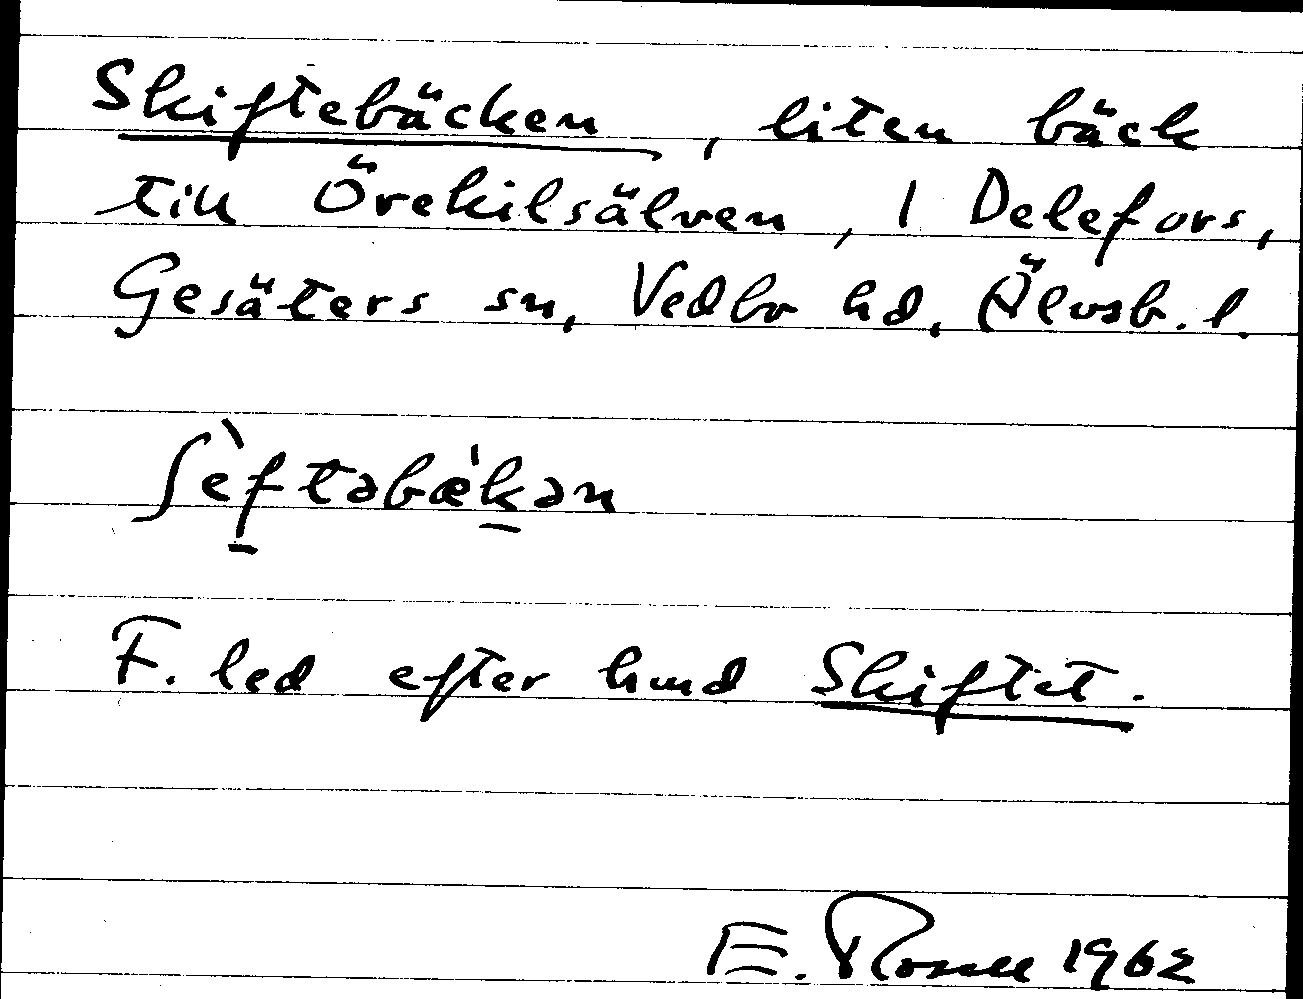 Skiftebäcken, liten bäck
till Örekilsälven, 1 Delefors,
Gesäters sn, Vedbo hd, Älvsb. l.
ʃèftəbæ̀kən
F. led efter hmd Skiftet.
E. Rosell 1962